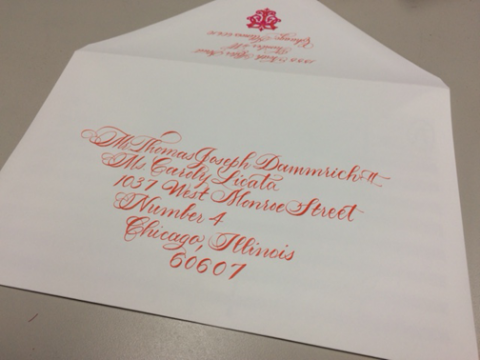 Mr. Thomas Joseph Dammrich II
Ms Caroly Licata
1037 West Monroe Street
Number 4
Chicago, Illinois
60607